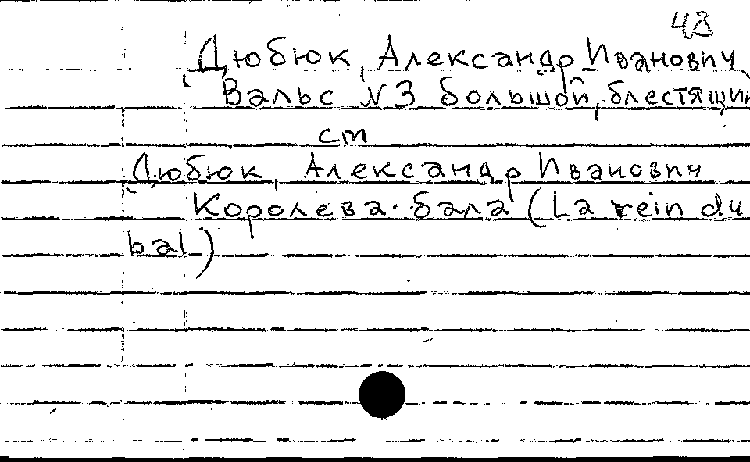 43
Дюбюк, Александр Иванович
Вальс N 3 большой, блестящий
см
Дюбюк, Александр Иванович
Королева бала (La rein du
bal)